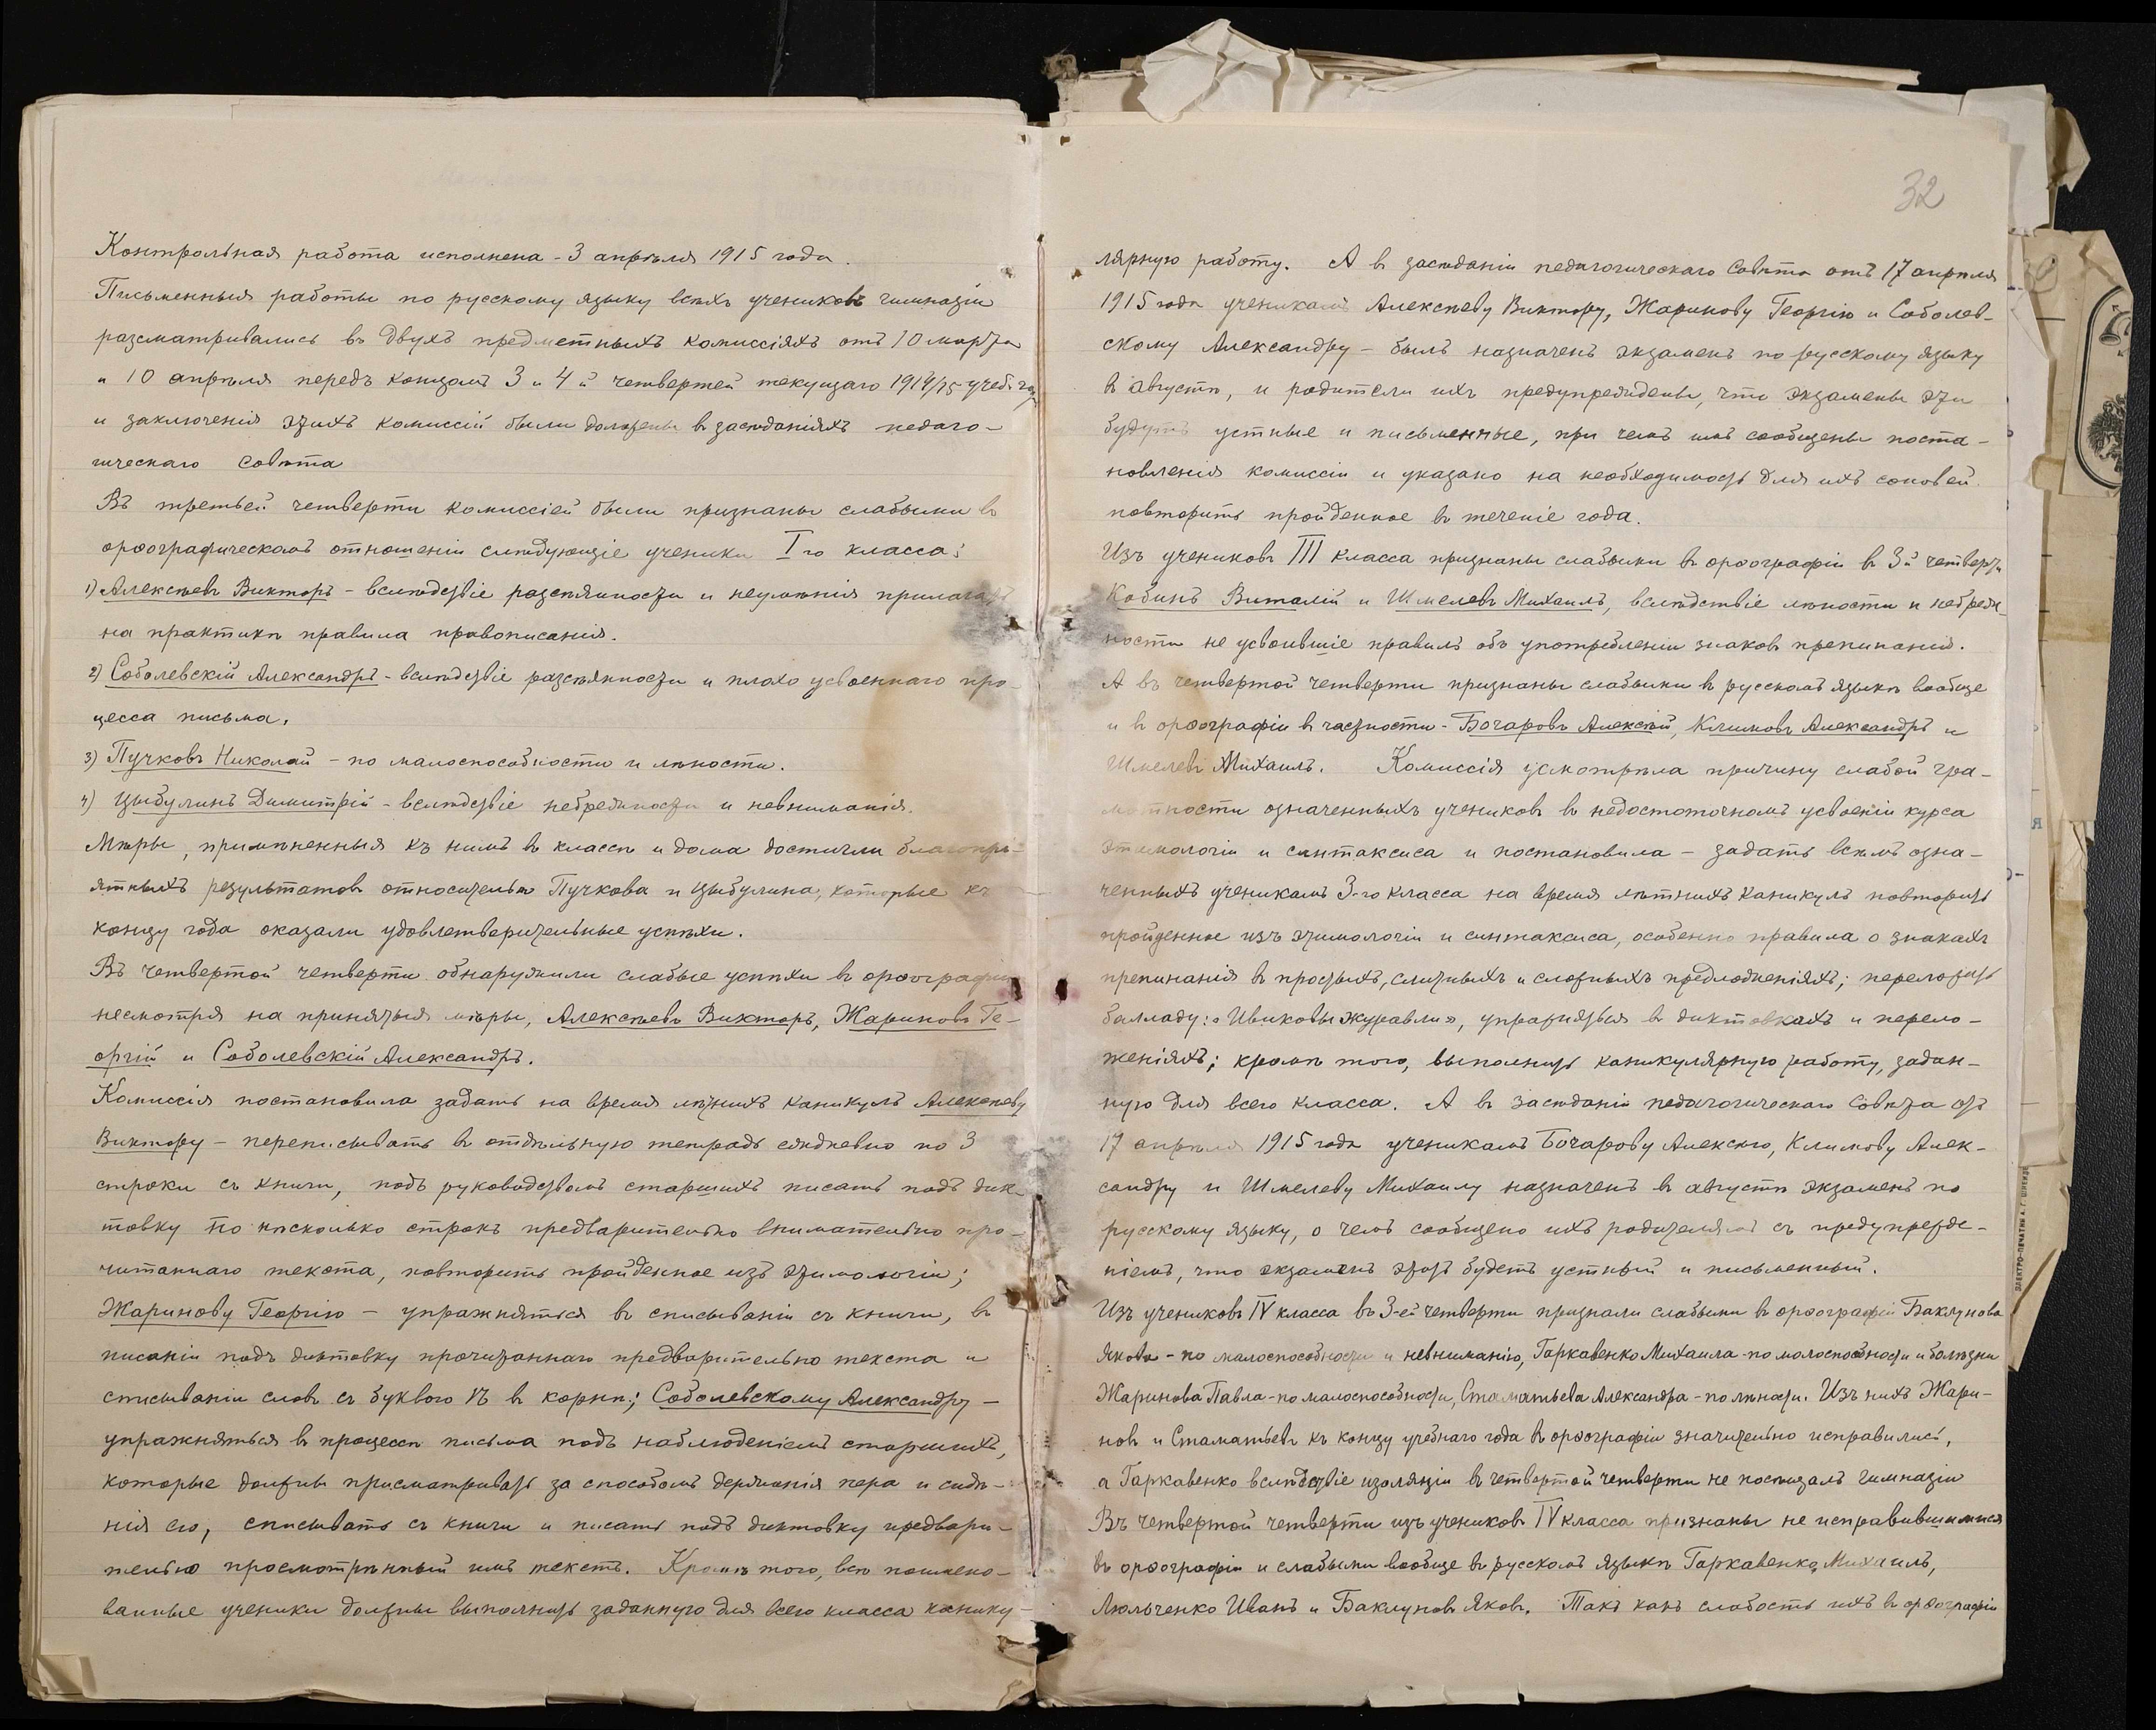 Контрольная работа исполнена - 3 апрѣля 1915 года.
Письменныя работы по русскому языку всѣхъ учениковъ гимназіи
разсматривались въ двухъ предметныхъ комиссіяхъ отъ 10 марта
и 10 апрѣля передъ концомъ 3 и 4й четвертей текущаго 1914/15 учеб. год
и заключенія этихъ комиссій были доложены въ засѣданіяхъ педаго-
гическаго совѣта
Въ третьей четверти комиссіей были признаны слабыми въ
орѳографическомъ отношеніи слѣдующіе ученики I го класса:
1) Алексѣевъ Викторъ - вслѣдствіе разсѣянности и неумѣнія прилагать
на практикѣ правила правописанія.
2) Соболевскій Александръ - вслѣдствіе разсѣянности и плохо усвоеннаго про-
цесса письма.
3) Пучковъ Николай - по малоспособности и лѣности.
4) Цыбулинъ Димитрій - вслѣдствіе небрежности и невниманія.
Мѣры, примѣненныя къ нимъ въ классѣ и дома достигли благопрі-
ятныхъ результатовъ относительно Пучкова и Цыбулина, которые къ
концу года оказали удовлетворительные успѣхи.
Въ четвертой четверти обнаружили слабые успѣхи въ орѳографіи
несмотря на принятыя мѣры, Алексѣевъ Викторъ, Жариновъ Ге-
оргій и Соболевскій Александръ.
Комиссія постановила задать на время лѣтнихъ каникулъ Алексѣеву
Виктору - переписывать въ отдѣльную тетрадь ежедневно по 3
строки съ книги, подъ руководствомъ старшихъ писать подъ дик-
товку по нѣсколько строкъ предварительно внимательно про-
читаннаго текста, повторить пройденное изъ этимологіи;
Жаринову Георгію - упражняться въ списываніи съ книги, въ
писаніи подъ диктовку прочитаннаго предварительно текста и
списываніи словъ съ буквою ѣ въ корнѣ; Соболевскому Александру -
упражняться въ процессѣ письма подъ наблюденіемъ старшихъ,
которые должны присматривать за способомъ держанія пера и сидѣ-
нія его, списывать съ книги и писать подъ диктовку предвари-
тельно просмотрѣнный имъ текстъ. Кромѣ того, всѣ поимено-
ванные ученики должны выполнить заданную для всего класса канику-
32
лярную работу. А въ засѣданіи педагогическаго совѣта отъ 17 апрѣля
1915 года ученикамъ Алексѣеву Виктору, Жаринову Георгію и Соболев-
скому Александру - былъ назначенъ экзаменъ по русскому языку
въ августѣ, и родители ихъ предупреждены, что экзамены эти
будутъ устные и письменные, при чемъ имъ сообщены поста-
новленія комиссіи и указано на необходимость для ихъ сыновей
повторить пройденное въ теченіе года.
Изъ учениковъ III класса признаны слабыми въ орѳографіи въ 3й четверти
Кобинъ Виталій и Шмелевъ Михаилъ, вслѣдствіе лѣности и небреж-
ности не усвоившіе правилъ объ употребленіи знаковъ препинанія.
А въ четвертой четверти признаны слабыми въ русскомъ языкѣ вообще
и въ орѳографіи въ частности - Бочаровъ Алексѣй, Климовъ Александръ и
Шмелевъ Михаилъ. Комиссія усмотрѣла причину слабой гра-
мотности означенныхъ учениковъ въ недостаточномъ усвоеніи курса
этимологіи и синтаксиса и постановила - задать всѣмъ озна-
ченнымъ ученикамъ 3-го класса на время лѣтнихъ каникулъ повторить
пройденное изъ этимологіи и синтаксиса, особенно правила о знакахъ
препинанія въ простыхъ, слитныхъ и сложныхъ предложеніяхъ; переложить
балладу: «Ивиковы журавли», упражняться въ диктовкахъ и перело-
женіяхъ; кромѣ того, выполнить каникулярную работу, задан-
ную для всего класса. А въ засѣданіи педагогическаго совѣта отъ
17 апрѣля 1915 года ученикамъ Бочарову Алексѣю, Климову Алек-
сандру и Шмелеву Михаилу назначенъ въ августѣ экзаменъ по
русскому языку, о чемъ сообщено ихъ родителямъ съ предупрежде-
ніемъ, что экзаменъ этотъ будетъ устный и письменный.
Изъ учениковъ IV класса въ 3-ей четверти признали слабыми въ орѳографіи Баклунова
Якова - по малоспособности и невниманію, Гаркавенко Михаила - по малоспособности и болѣзни
Жаринова Павла - по малоспособности, Стаматьева Александра - по лѣности. Изъ нихъ Жари-
новъ и Стаматьевъ къ концу учебнаго года въ орѳографіи значительно исправились,
а Гаркавенко вслѣдствіе изоляціи въ четвертой четверти не посѣщалъ гимназіи
Въ четвертой четверти изъ учениковъ IV класса признаны не исправившимися
въ орѳографіи и слабыми вообще въ русскомъ языкѣ Гаркавенко Михаилъ,
Люльченко Иванъ и Баклуновъ Яковъ. Такъ какъ слабость ихъ въ орѳографіи
ЭЛЕКТРО-ПЕЧАТНЯ